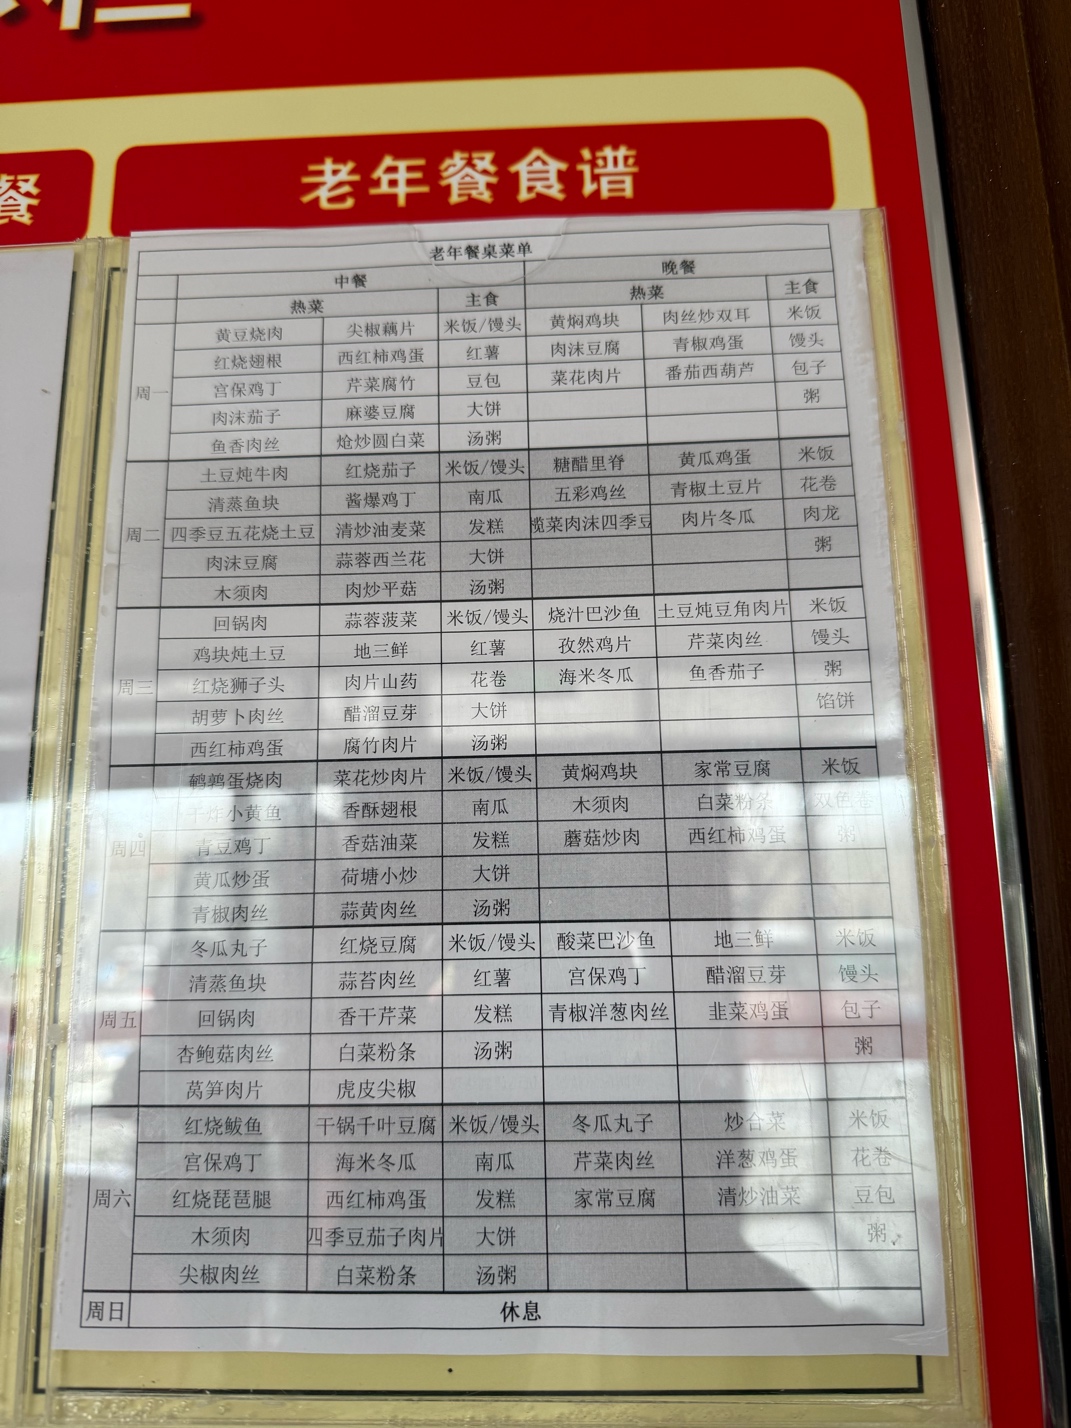 餐
老年餐食谱
老年餐桌菜单
中餐 晚餐
热菜 主食 热菜 主食
周一 黄豆烧肉 尖椒藕片 米饭/馒头 黄焖鸡块 肉丝炒双耳 米饭
红烧翅根 西红柿鸡蛋 红薯 肉沫豆腐 青椒鸡蛋 馒头
宫保鸡丁 芹菜腐竹 豆包 菜花肉片 番茄西葫芦 包子
肉沫茄子 麻婆豆腐 大饼 粥
鱼香肉丝 炝炒圆白菜 汤粥
周二 土豆炖牛肉 红烧茄子 米饭/馒头 糖醋里脊 黄瓜鸡蛋 米饭
清蒸鱼块 酱爆鸡丁 南瓜 五彩鸡丝 青椒土豆片 花卷
四季豆五花烧土豆 清炒油麦菜 发糕 榄菜肉沫四季豆 肉片冬瓜 肉龙
肉沫豆腐 蒜蓉西兰花 大饼 粥
木须肉 肉炒平菇 汤粥
周三 回锅肉 蒜蓉菠菜 米饭/馒头 烧汁巴沙鱼 土豆炖豆角肉片 米饭
鸡块炖土豆 地三鲜 红薯 孜然鸡片 芹菜肉丝 馒头
红烧狮子头 肉片山药 花卷 海米冬瓜 鱼香茄子 粥
胡萝卜肉丝 醋溜豆芽 大饼 馅饼
西红柿鸡蛋 腐竹肉片 汤粥
周四 鹌鹑蛋烧肉 菜花炒肉片 米饭/馒头 黄焖鸡块 家常豆腐 米饭
干炸小黄鱼 香酥翅根 南瓜 木须肉 白菜粉条 双色卷
青豆鸡丁 香菇油菜 发糕 蘑菇炒肉 西红柿鸡蛋 粥
黄瓜炒蛋 荷塘小炒 大饼
青椒肉丝 蒜黄肉丝 汤粥
周五 冬瓜丸子 红烧豆腐 米饭/馒头 酸菜巴沙鱼 地三鲜 米饭
清蒸鱼块 蒜苔肉丝 红薯 宫保鸡丁 醋溜豆芽 馒头
回锅肉 香干芹菜 发糕 青椒洋葱肉丝 韭菜鸡蛋 包子
杏鲍菇肉丝 白菜粉条 汤粥 粥
莴笋肉片 虎皮尖椒
周六 红烧鲅鱼 干锅千叶豆腐 米饭/馒头 冬瓜丸子 炒合菜 米饭
宫保鸡丁 海米冬瓜 南瓜 芹菜肉丝 洋葱鸡蛋 花卷
红烧琵琶腿 西红柿鸡蛋 发糕 家常豆腐 清炒油菜 豆包
木须肉 四季豆茄子肉片 大饼 粥
尖椒肉丝 白菜粉条 汤粥
周日 休息